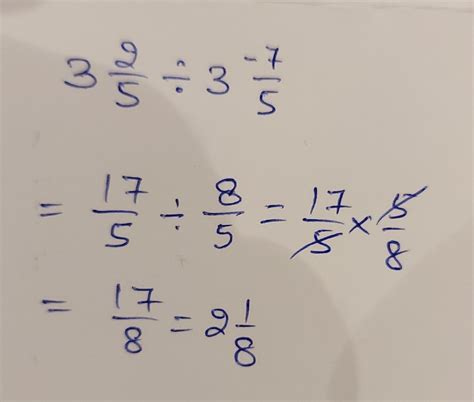 3 2/5 ÷ 3 -7/5
= 17/5 ÷ 8/5 = 17/5 × 5/8
= 17/8 = 2 1/8